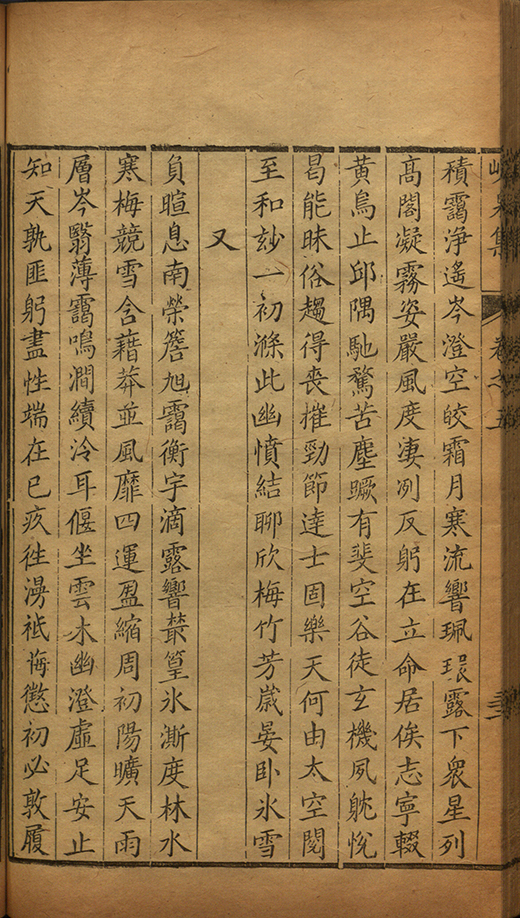 峴泉集 卷之五
積靄淨遙岑澄空皎霜月寒流響珮環露下衆星列
高閣凝霧姿嚴風度淒冽反躬在立命居俟志寧輟
黃鳥止邱隅馳騖苦塵蹶有斐空谷徒玄機夙躭悅
曷能昧俗趨得喪摧勁節達士固樂天何由太空閱
至和玅一初滌此幽憤結聊欣梅竹芳歲晏卧氷雪
又
負暄息南榮簷旭靄衡宇滴露響叢篁氷澌度林水
寒梅競雪含藉莽並風靡四運盈縮周初陽曠天雨
層岑翳薄靄鳴澗續泠耳偃坐雲木幽澄虛足安止
知天孰匪躬盡性端在已疚徃溤祗誨懲初必敦履